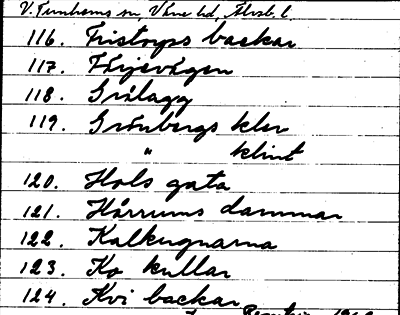 V. Tunhems sn Väne hd, Älvsb. l.
116. Fristorps backar
117. Färjevägen
118. Grålagg
119. Grönbergs klev
" klint
120. Hols gata
121. Hårrums dammar
122. Kalkugnarna
123. Ko kullar
124. Kvi backar